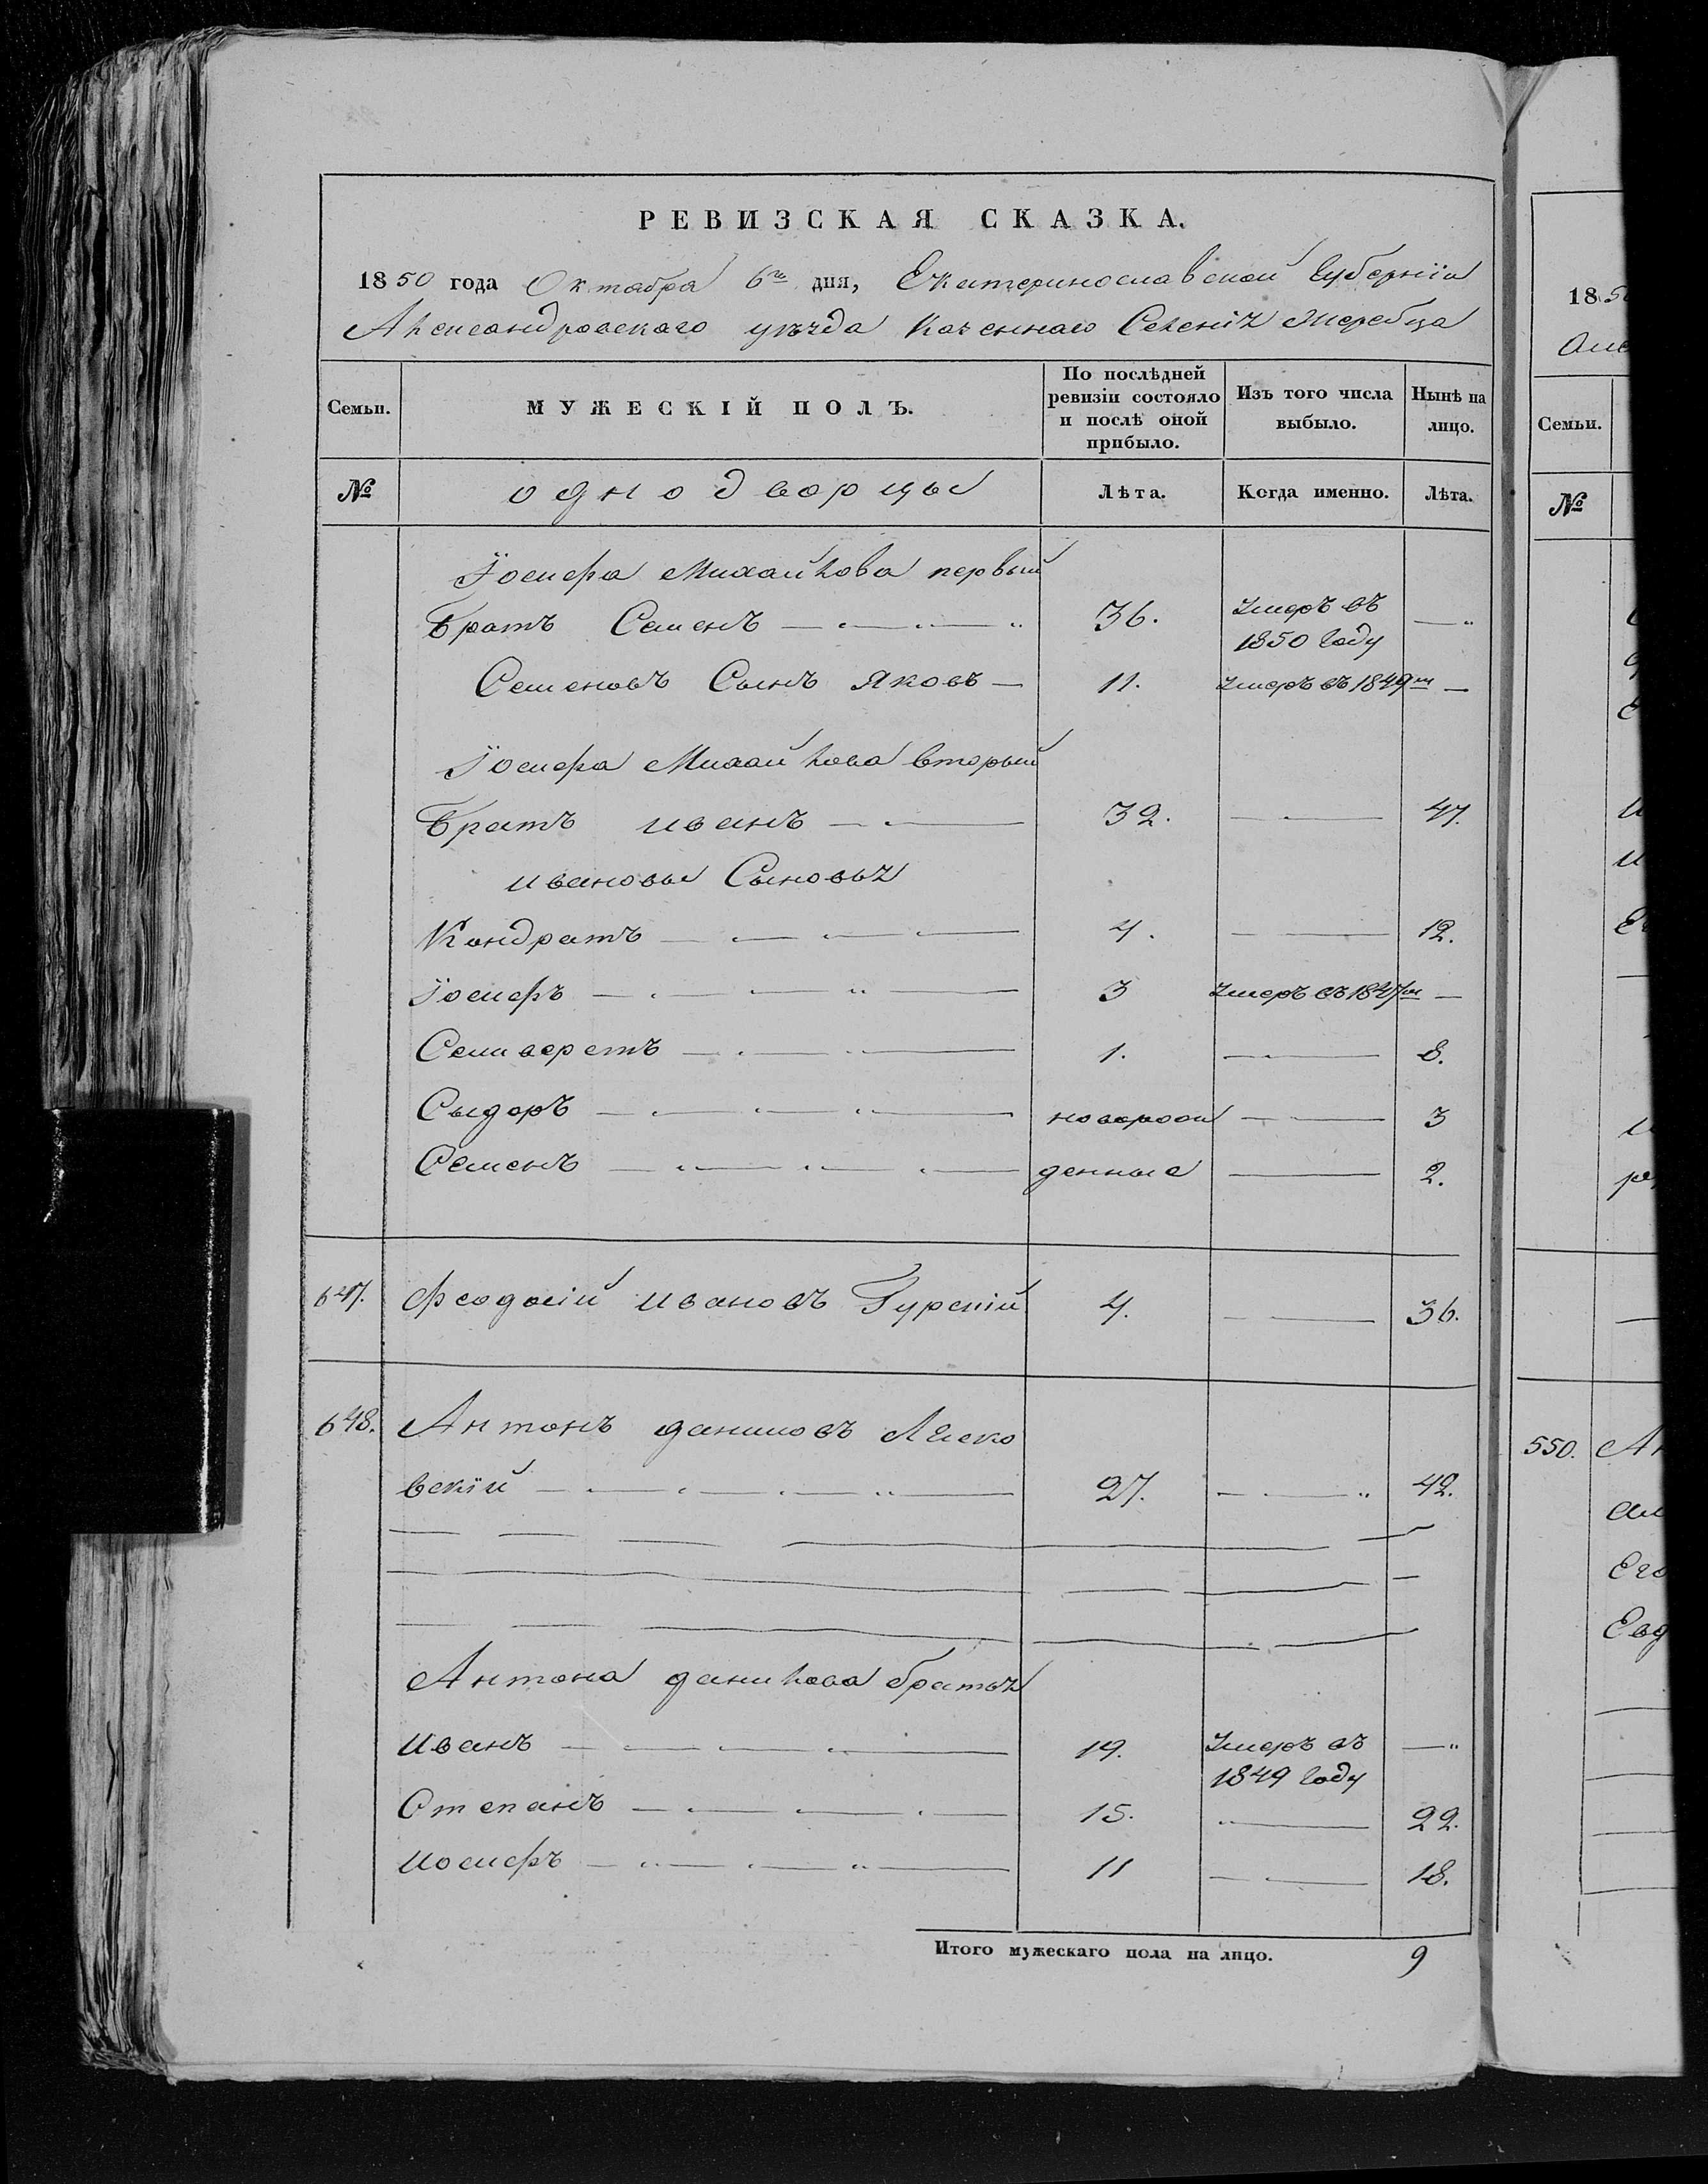 РЕВИЗСКАЯ СКАЗКА.
1850 года Октабра 6го дня, Екатеринославской Губерніи
Александровскаго уѣзда Казеннаго Селенія Жеребца
Семьи. МУЖЕСКІЙ ПОЛЪ. По послѣдней ревизіи состояло и послѣ оной прибыло. Изъ того числа выбыло. Нынѣ на лицо.
№ однодворцы Лѣта. Когда именно. Лѣта.
Іосифа Михайлова первый
Братъ Семенъ 36. Умеръ въ 1850 Году
Семеновъ Сынъ Яковъ 11. Умеръ въ 1849м
Іосифа Михайлова вторый
Братъ иванъ 32. 47.
ивановы Сыновья
Кондратъ 4. 12.
Іосифъ 3 Умеръ въ 1847м
Селиверстъ 1. 8.
Сыдоръ новорож 3
Семенъ денные 2.
647. Феодосій ивановъ Гурскій 4. 36.
648. Антонъ даниловъ
вскій 27. 42.
Антона данилова братья
Иванъ 19. Умеръ въ 1849 Году
Степанъ 15. 22.
Иосифъ 11 18.
Итого мужескаго пола на лицо. 9
18 5
Семьи.
№
550.